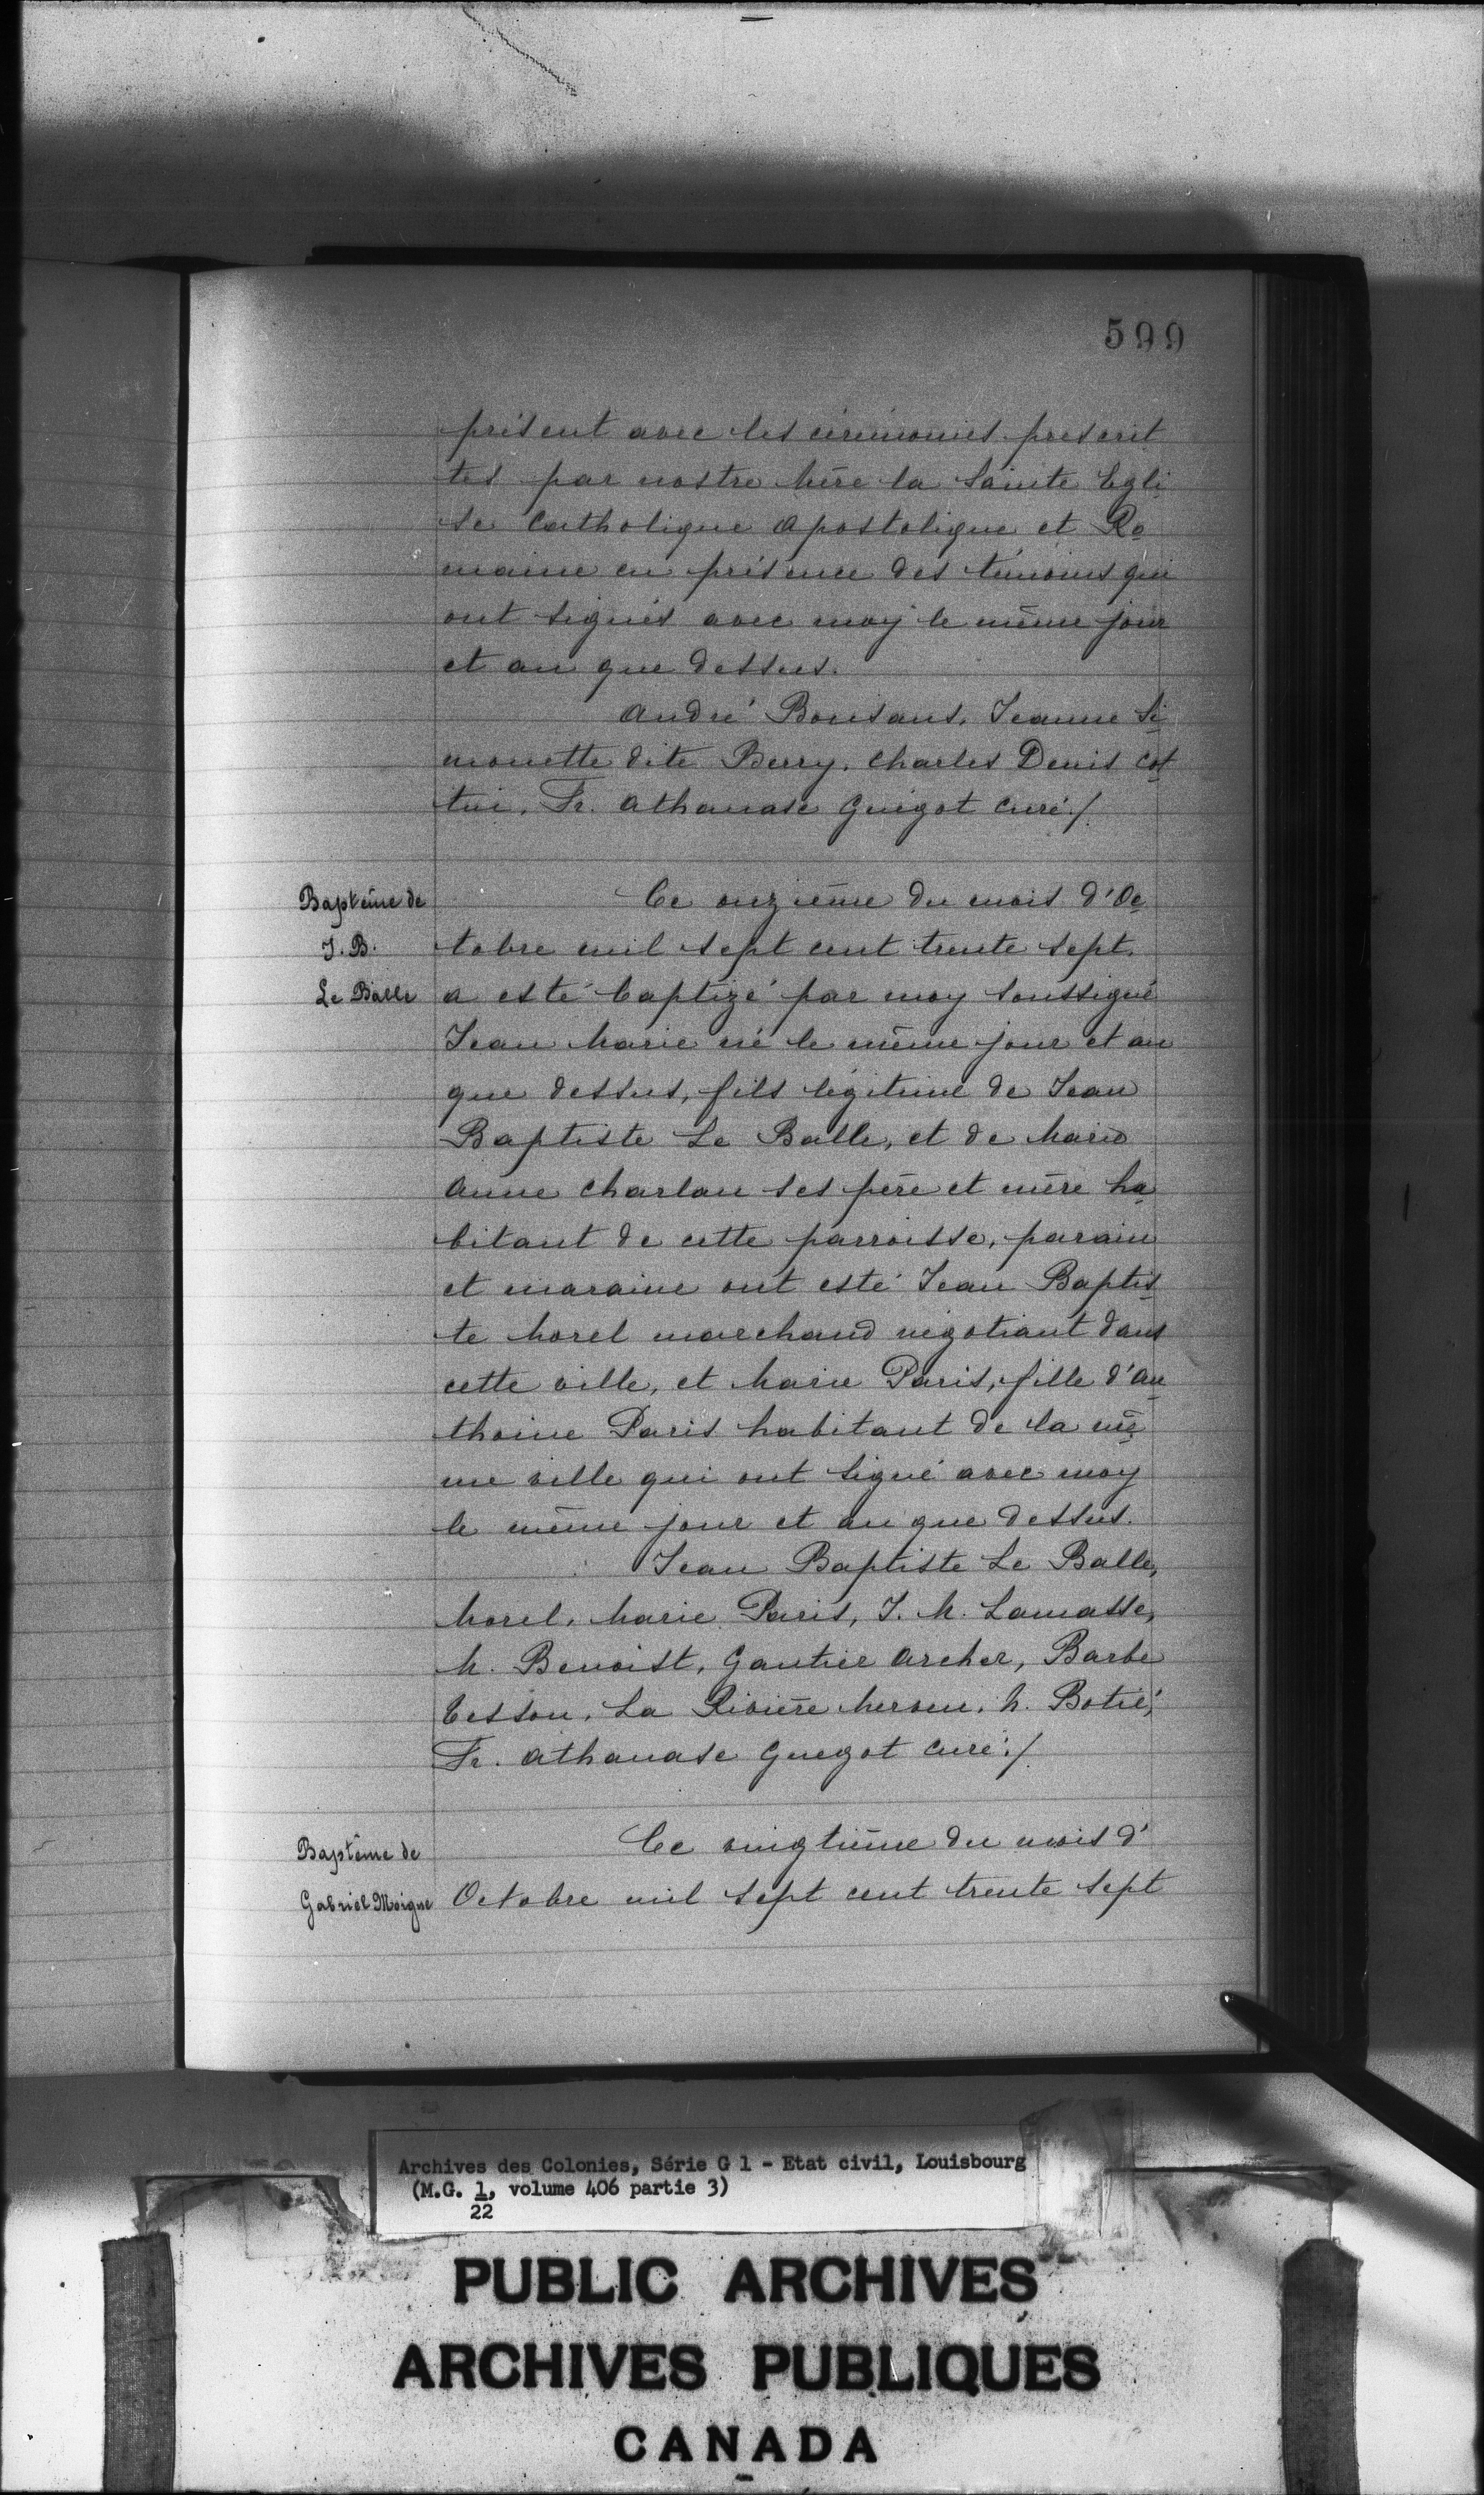 599
présent avec les cérémonies prescrit
tes par nostre Mère la Sainte Egli
se Catholique Apostolique et Ro
maine en présence des témoins qui
ont signés avec moy le même jour
et an que dessus.
André Bonsans, Jeanne Si
monette dite Berry, Charles Denis Cos
tui, Fr. Athanase Guégot Curé./.
Baptême de
J. B.
Le Balle
Ce onzième du mois d'Oc
tobre mil sept cent trente sept.
a esté baptizé par moy soussigné
Jean Marie né le même jour et an
que dessus, fils légitime de Jean
Baptiste Le Balle, et de Marie
Anne Charlan ses père et mère ha
bitant de cette parroisse, parain
et maraine ont esté Jean Baptis
te Morel marchand négotiant dans
cette ville, et Marie Paris, fille d'An
thoine Paris habitant de la mê
me ville qui ont signé avec moy
le même jour et an que dessus.
Jean Baptiste Le Balle,
Morel, Marie Paris, J. M. Lamasse,
M. Benoist, Gautier Archer, Barbe
Tesson, La Rivière M. Botié,
Fr. Athanase Guegot Curé./.
Baptême de
Gabriel Moigne
Ce vingtième du mois d'
Octobre mil sept cent trente sept
Archives des Colonies, Série G 1 - Etat civil, Louisbourg
(M.G. 1, volume 406 partie 3)
22
PUBLIC ARCHIVES
ARCHIVES PUBLIQUES
CANADA